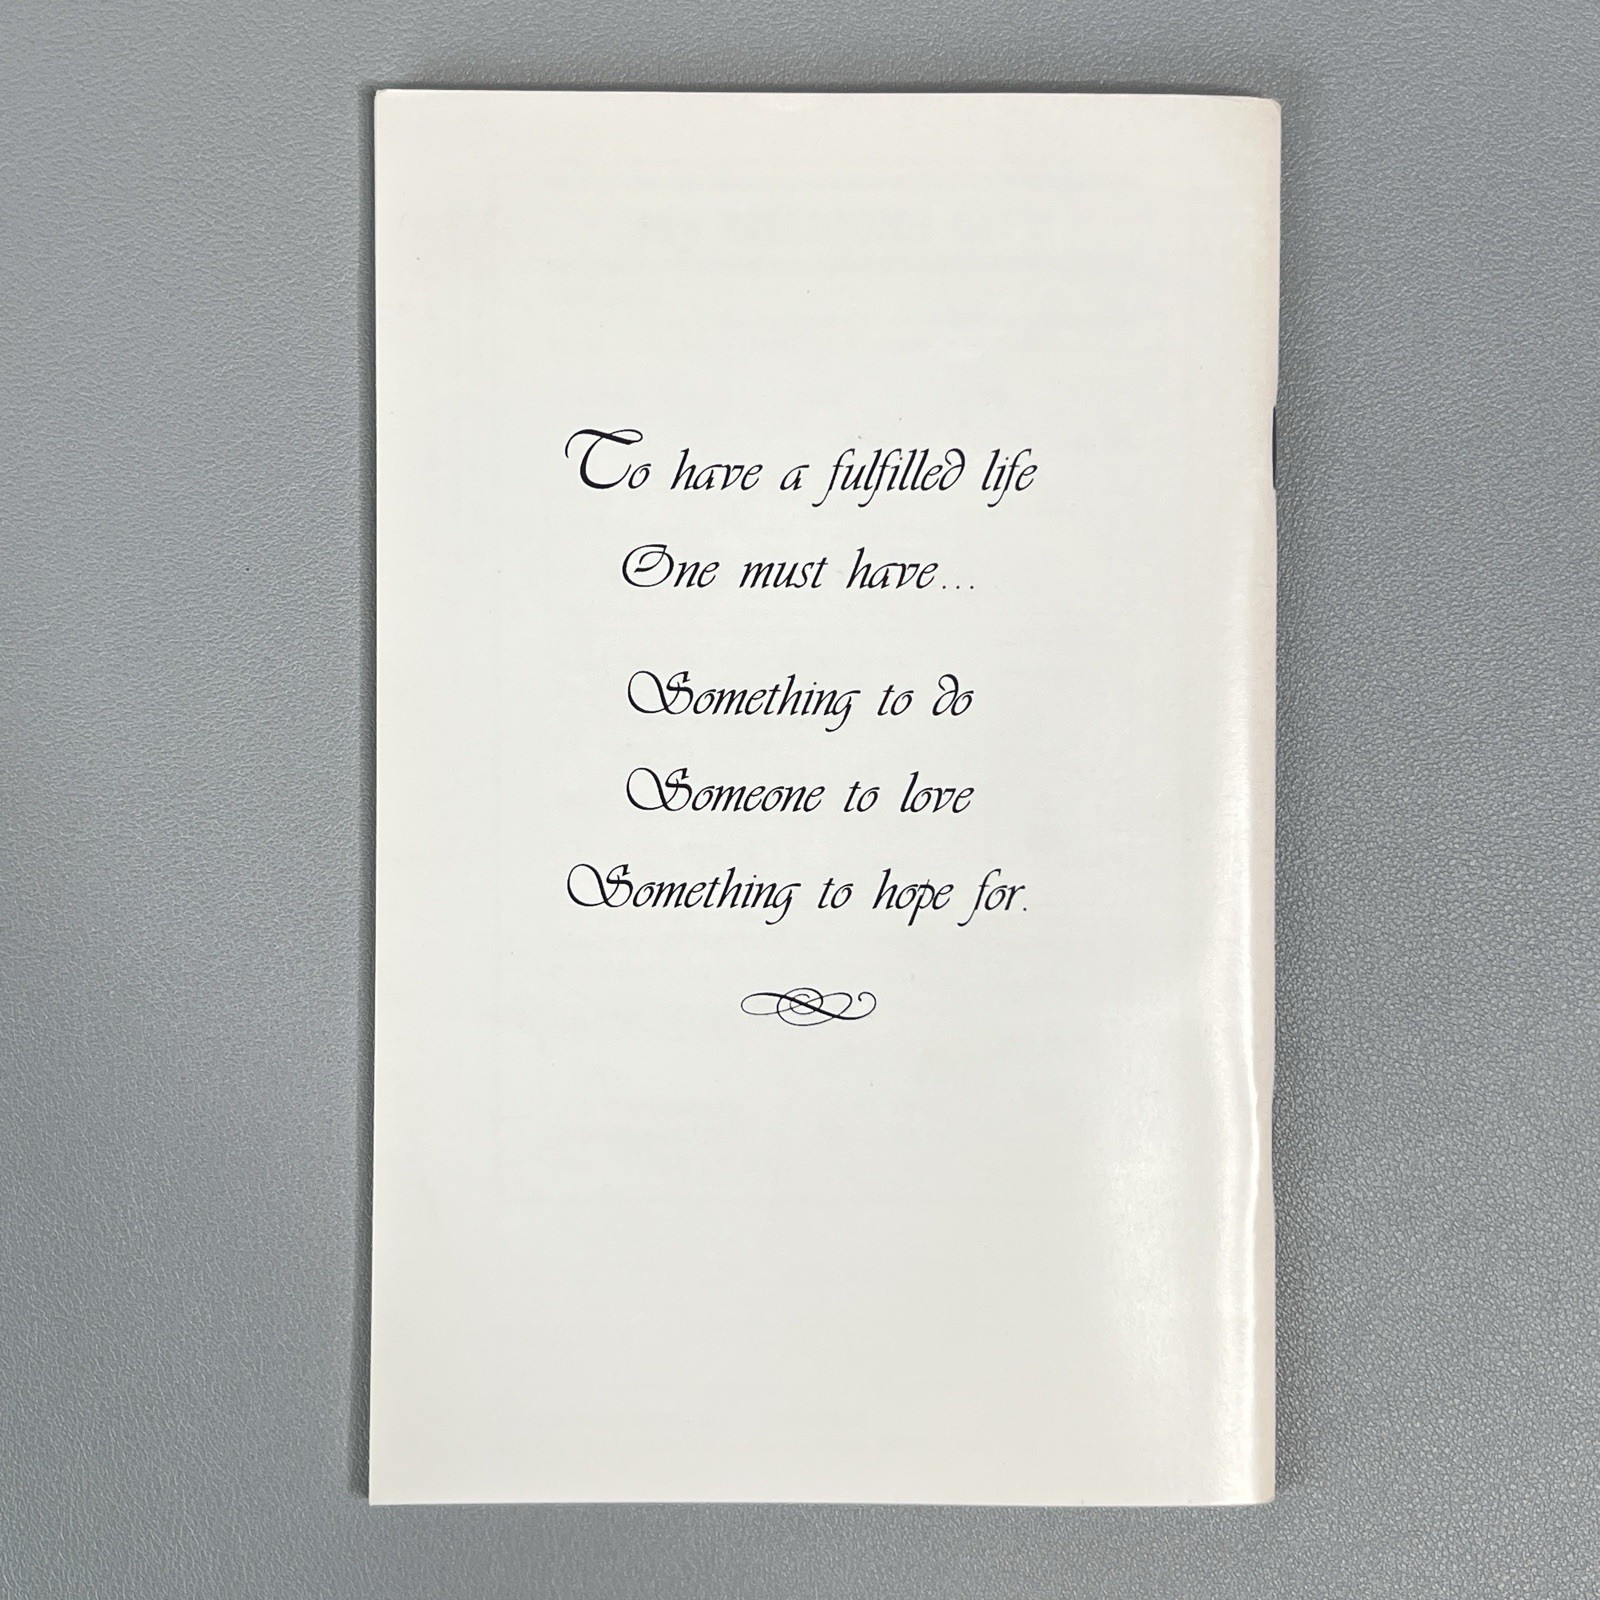 To have a fulfilled life
One must have...
Something to do
Someone to love
Something to hope for.